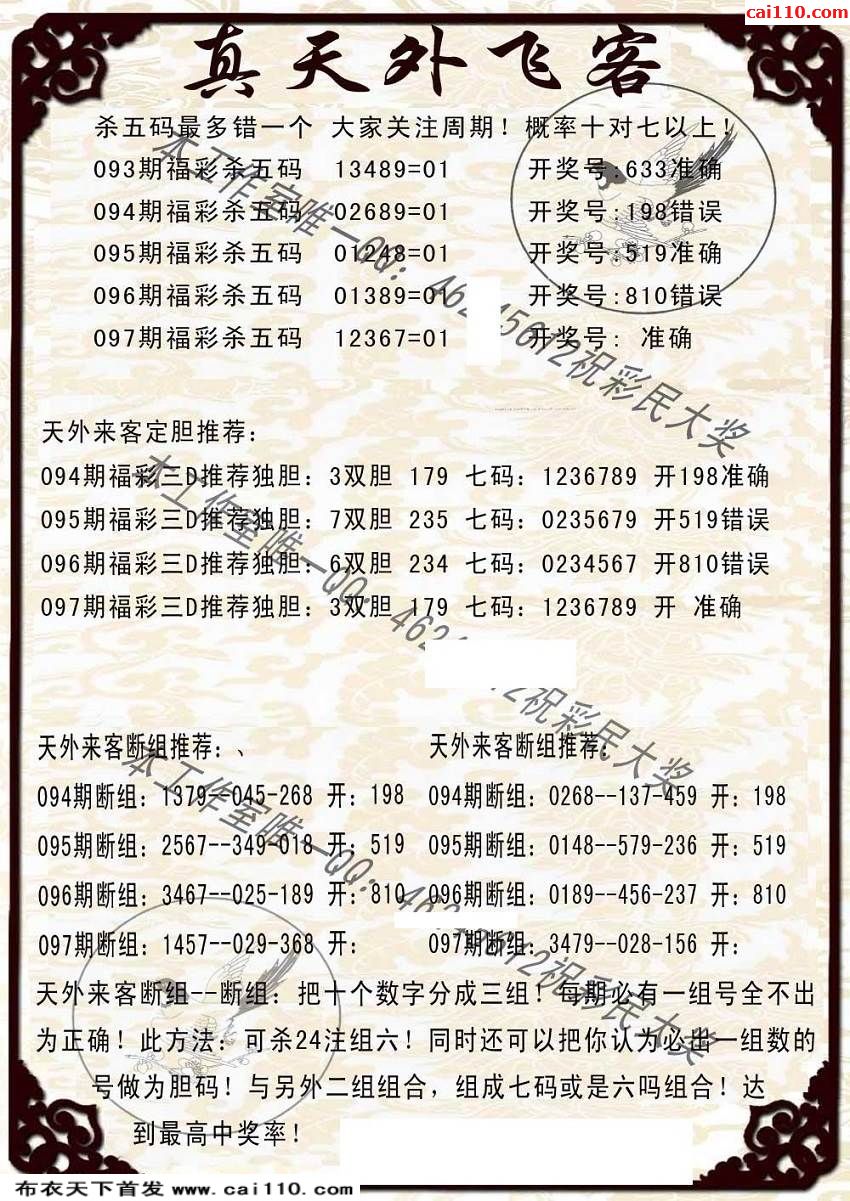 cai110.com
真天外飞客
杀五码最多错一个 大家关注周期！概率十对七以上！
093期福彩杀五码 13489=01 开奖号:633准确
094期福彩杀五码 02689=01 开奖号:198错误
095期福彩杀五码 01248=01 开奖号:519准确
096期福彩杀五码 01389=01 开奖号:810错误
097期福彩杀五码 12367=01 开奖号: 准确
天外来客定胆推荐：
094期福彩三D推荐独胆：3双胆 179 七码：1236789 开198准确
095期福彩三D推荐独胆：7双胆 235 七码：0235679 开519错误
096期福彩三D推荐独胆：6双胆 234 七码：0234567 开810错误
097期福彩三D推荐独胆：3双胆 179 七码：1236789 开 准确
天外来客断组推荐：、
094期断组：1379--045-268 开：198
095期断组：2567--349-018 开：519
096期断组：3467--025-189 开：810
097期断组：1457--029-368 开：
天外来客断组推荐：
094期断组：0268--137-459 开：198
095期断组：0148--579-236 开：519
096期断组：0189--456-237 开：810
097期断组：3479--028-156 开：
天外来客断组--断组：把十个数字分成三组！每期必有一组号全不出
为正确！此方法：可杀24注组六！同时还可以把你认为必出一组数的
号做为胆码！与另外二组组合，组成七码或是六吗组合！达
到最高中奖率！
本工作室唯一QQ：祝彩民大奖
本工作室唯一QQ：祝彩民大奖
本工作室唯一QQ：祝彩民大奖
布衣天下首发 www.cai110.com